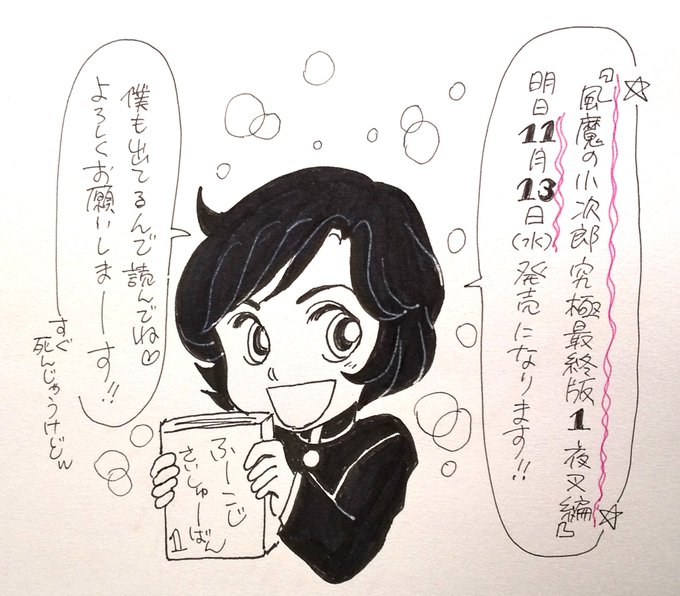 『風魔の小次郎 究極最終版 1 夜叉編』
明日11月13日(水)発売になります!!
僕も出てるんで読んでね♡
よろしくお願いしまーす!!
すぐ
死んじゃうけどw
ふーこじ
さいしゅーばん
1